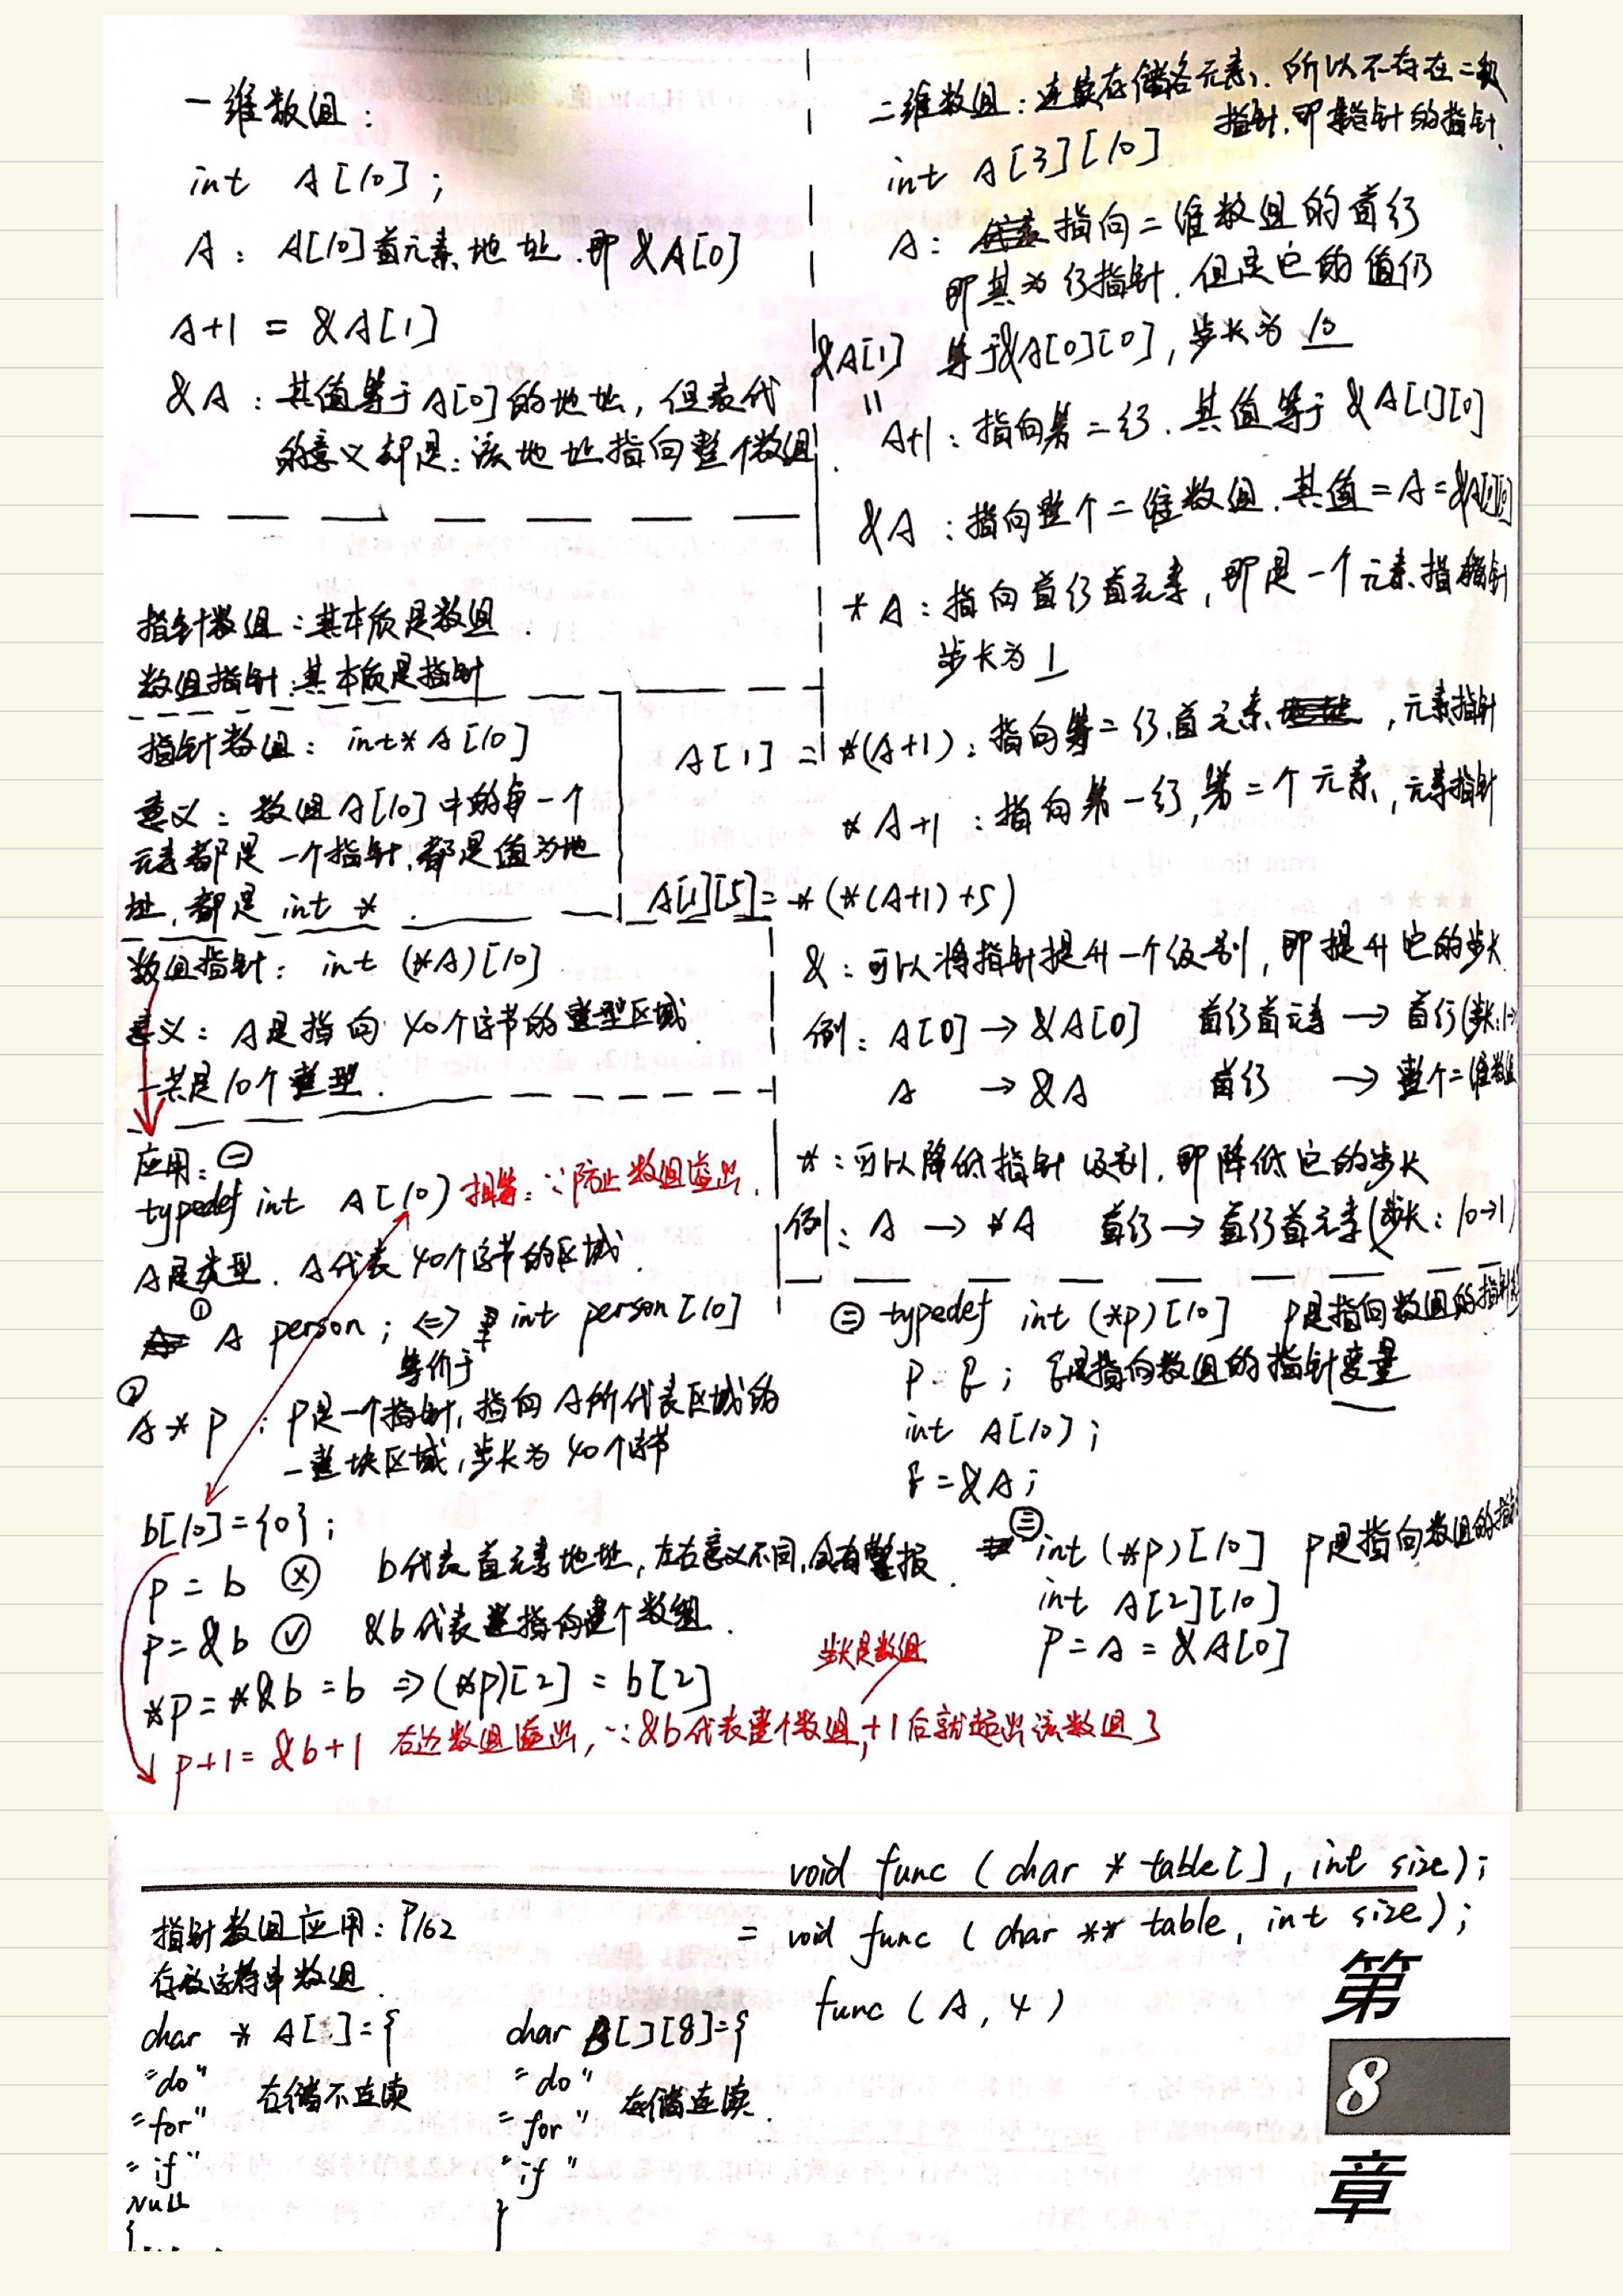 一维数组：
int A[10];
A：A[10]首元素地址.即&A[0]
A+1 = &A[1]
&A：其值等于A[0]的地址，但表代
的意义却是：该地址指向整个数组.
指针数组：其本质是数组.
数组指针：其本质是指针
指针数组：int* A[10]
意义：数组A[10]中的每一个
元素都是一个指针，都是值为地
址，都是 int *.
数组指针：int (*A)[10]
意义：A是指向40个字节的整型区域.
一共是10个整型.
应用：㊀
typedef int A[10]
相等：∵防止数组溢出.
A是类型. A代表40个字节的区域.
① A person; <=> int person[10]
等价于
② A * p：p是一个指针，指向A所代表区域的
一整块区域，步长为40个字节
b[10]={0};
p = b ⓧ b代表首元素地址，左右意义不同，会有警报.
p = &b ✓ &b代表是指向整个数组.
*p = *&b = b => (*p)[2] = b[2]
步长是数组
p+1 = &b+1 右边数组溢出，∵&b代表整个数组，+1后就超出该数组了
二维数组：连续存储各元素，所以不存在二级
指针，即指针的指针.
int A[3][10]
A：指向二维数组的首行
即其为行指针.但是它的值仍
等于&A[0][0]，步长为10
&A[1] = A+1：指向第二行.其值等于&A[1][0]
&A：指向整个二维数组.其值=A=
*A：指向首行首元素，即是一个元素指针
步长为1
A[1] = *(A+1)：指向第二行首元素，元素指针
*A+1：指向第一行，第二个元素，元素指针
A[1][5] = *(*(A+1)+5)
&：可以将指针提升一个级别，即提升它的步长
例：A[0] → &A[0] 首行首元素 → 首行
A → &A 首行 → 整个二维数组
*：可以降低指针级别，即降低它的步长
例：A → *A 首行 → 首行首元素(步长：10→1)
㊁ typedef int (*p)[10] p是指向数组的指针
是指向数组的指针变量
int A[10];
= &A;
㊂ int (*p)[10] p是指向数组的指针
int A[2][10]
p = A = &A[0]
void func (char * table[], int size);
= void func (char ** table, int size);
func (A, 4)
指针数组应用：P162
存放字符串数组.
char * A[ ]={
"do"
"for"
"if"
NULL
存储不连续
char B[][8]={
"do"
"for"
"if"
}
存储连续.
第
8
章